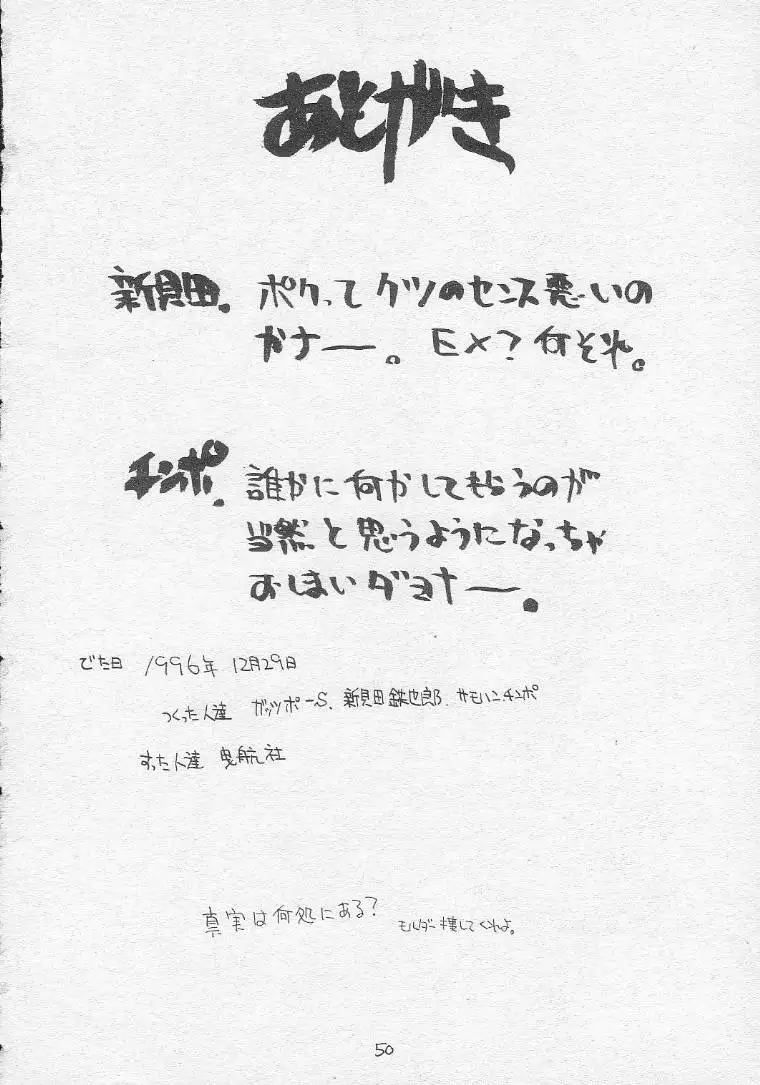 あとがき
新貝田。ボクってケツのセンス悪いの
かナー。EX?何それ。
チンポ。誰かに何かしてもらうのが
当然と思うようになっちゃ
おしまいダヨナー。
でた日 1996年12月29日
つくった人達 ガッツポーS、新貝田鉄也郎、サモハンチンポ
すった人達 曳航社
真実は何処にある?
モルダー捜してくれよ。
50